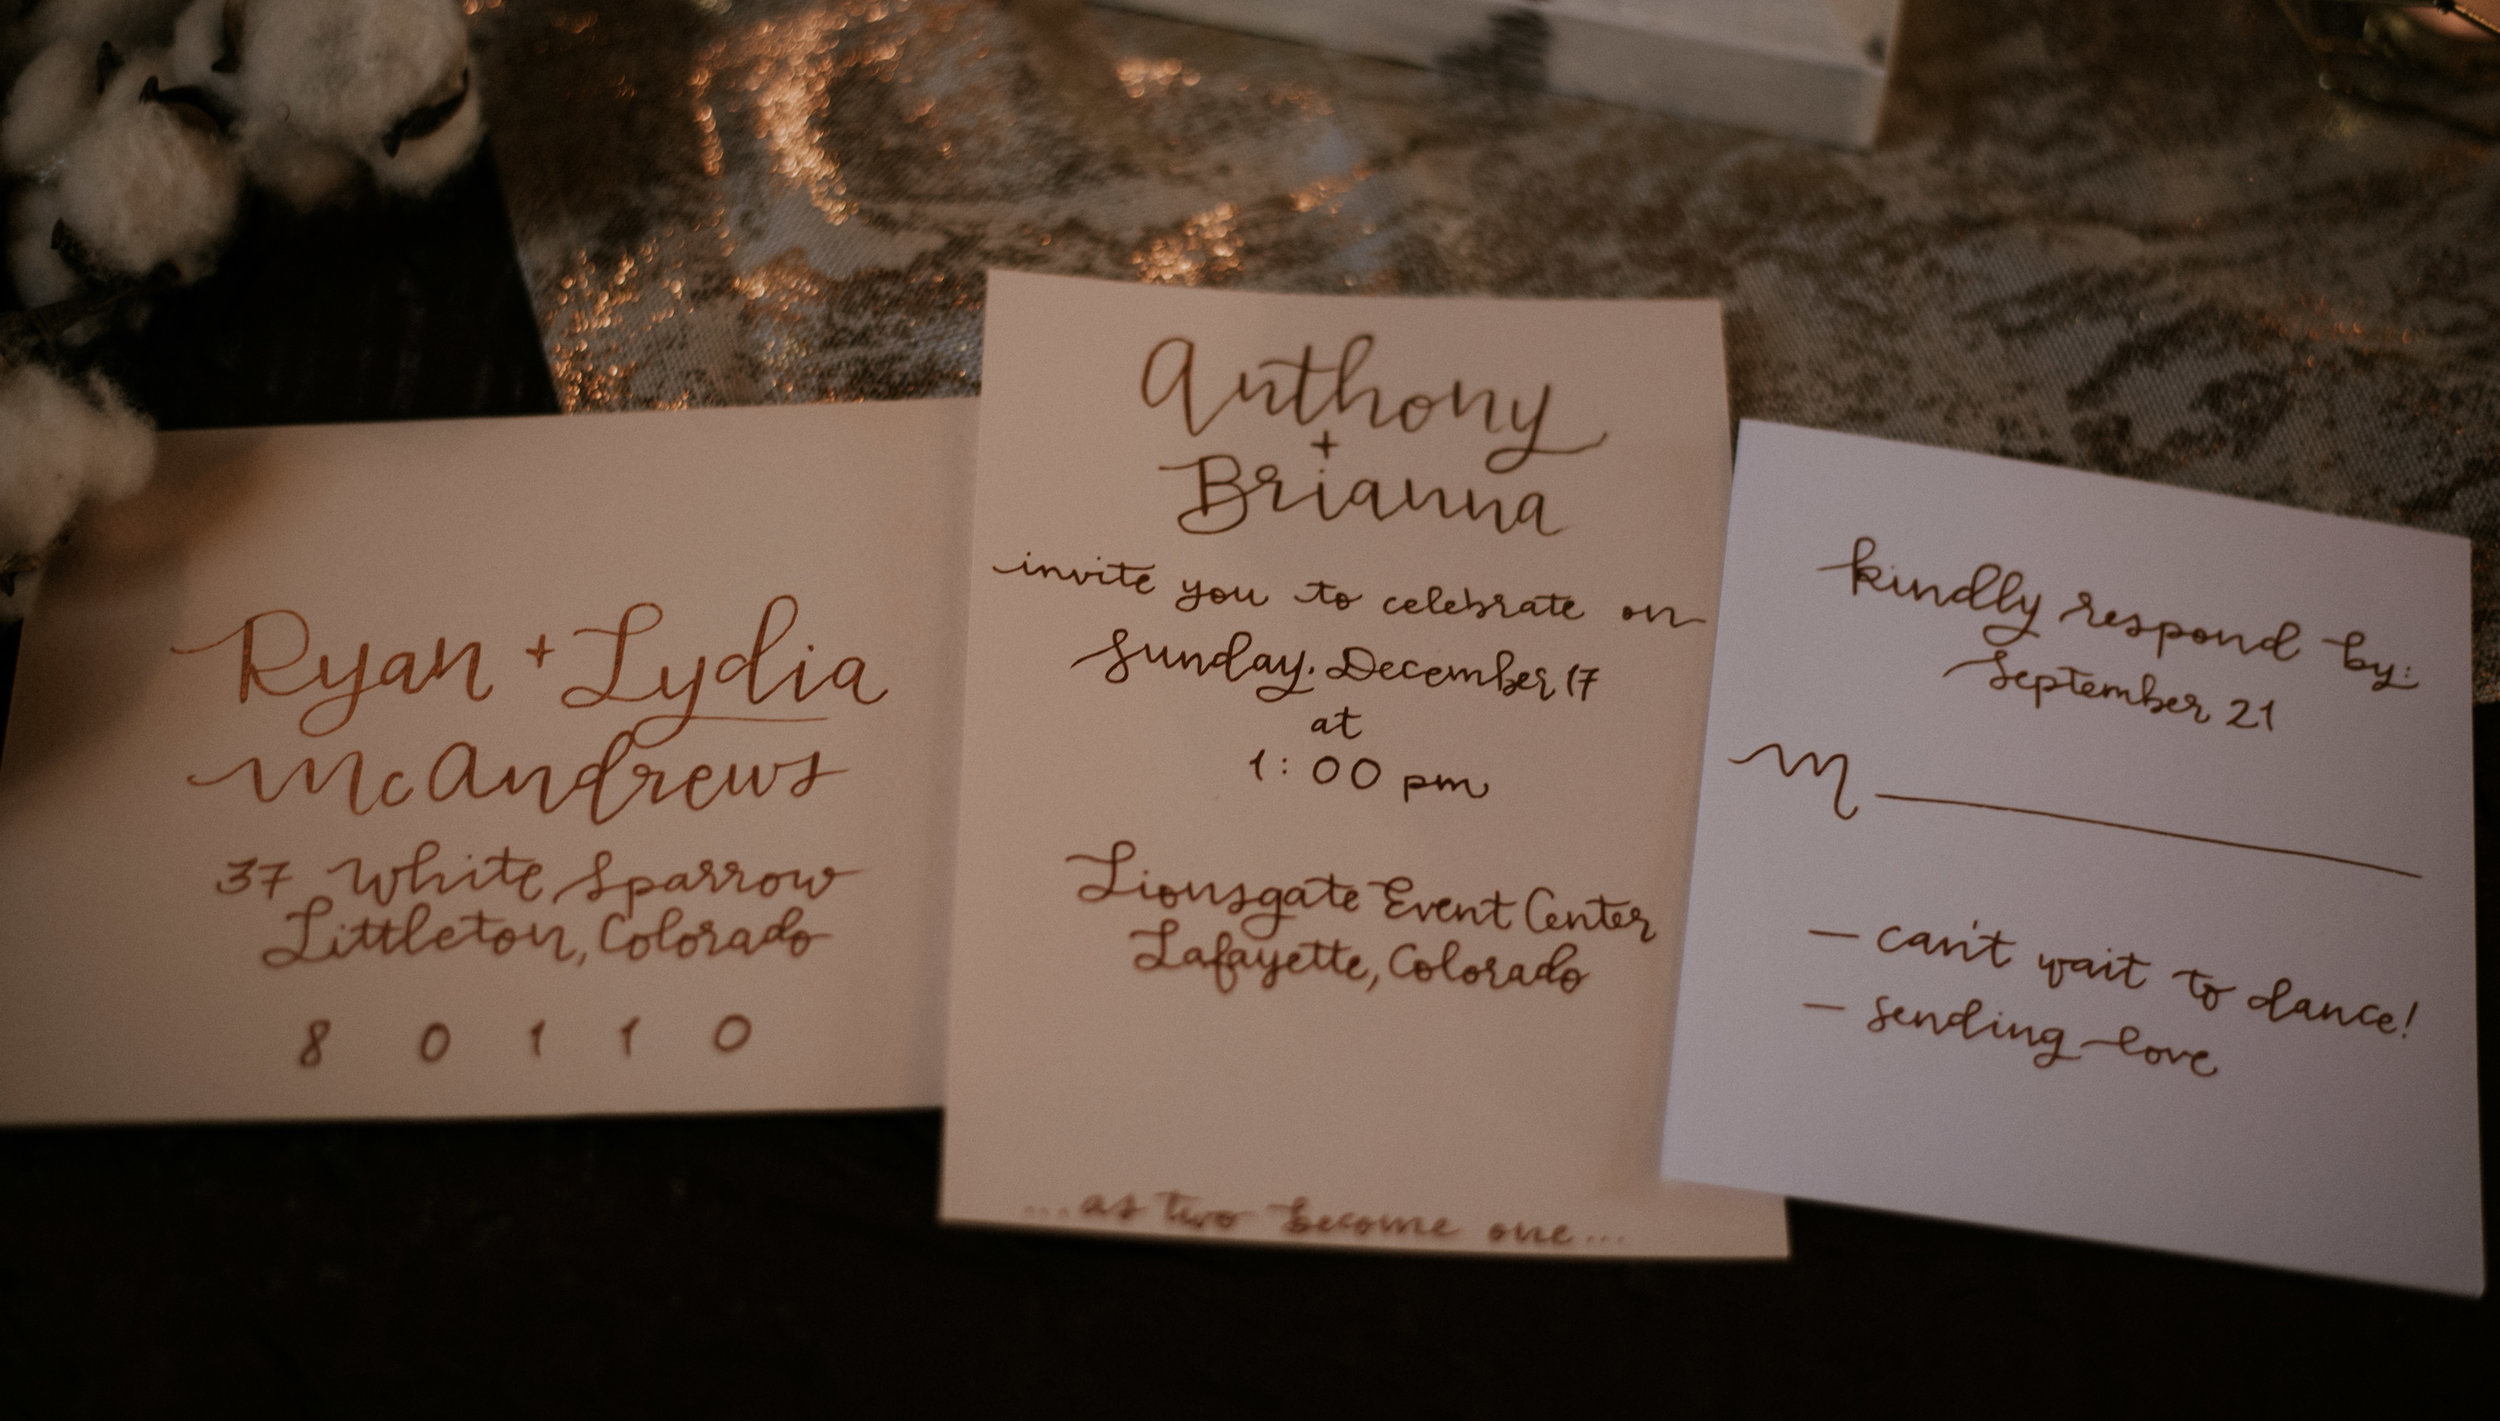 Ryan + Lydia
McAndrews
37 White Sparrow
Littleton, Colorado
8 0 1 1 0
Anthony
+
Brianna
invite you to celebrate on
Sunday, December 17
at
1:00 pm
Lionsgate Event Center
Lafayette, Colorado
...as two become one...
kindly respond by:
September 21
M
- can't wait to dance!
- sending love